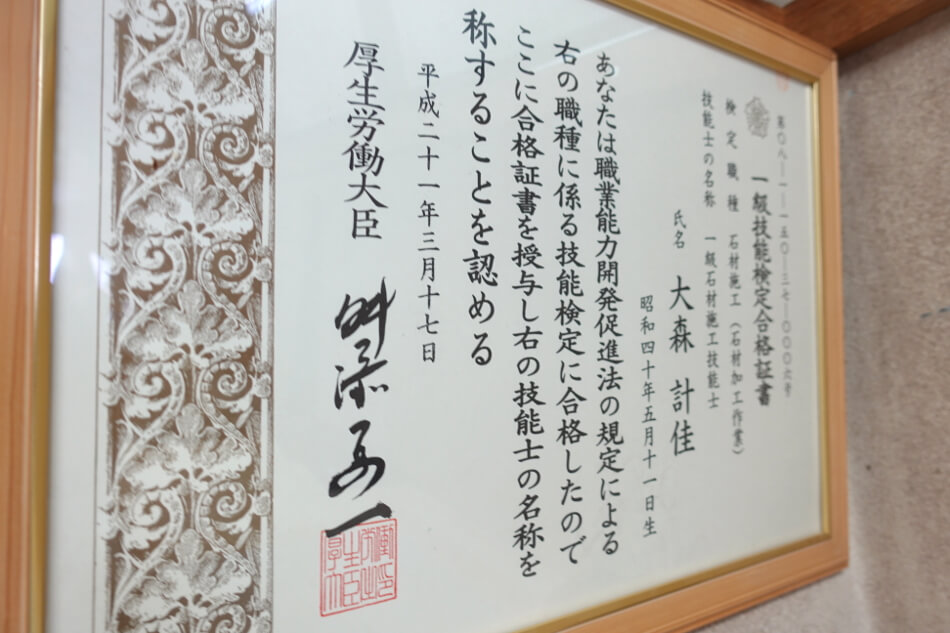 第〇八—一—一五〇—三七—〇〇〇六号
一級技能検定合格証書
検定職種 石材施工(石材加工作業)
技能士の名称 一級石材施工技能士
氏名 大森 計佳
昭和四十年五月十一日生
あなたは職業能力開発促進法の規定による
右の職種に係る技能検定に合格したので
ここに合格証書を授与し右の技能士の名称を
称することを認める
平成二十一年三月十七日
厚生労働大臣 舛添要一